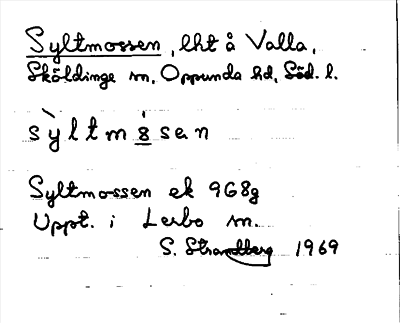 Syltmossen, lht å Valla,
Sköldinge sn, Oppunda hd, Söd. l.
sỳltm8́sen
Syltmossen ek 9G8g
Uppt. i Lerbo sn.
S. Strandberg 1969